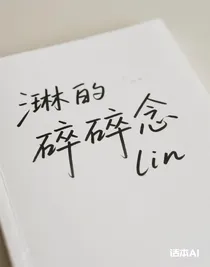 的
碎碎念
lin
话本AI